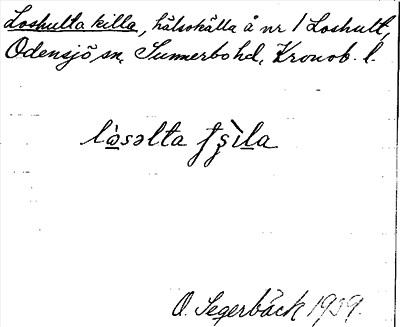 Loshulta killa, hälsokälla å nr 1 Loshult,
Odensjö sn, Sunnerbo hd, Kronob. l.
lò̲səlta ʃʂìl̲a
O. Segerbäck 1909.